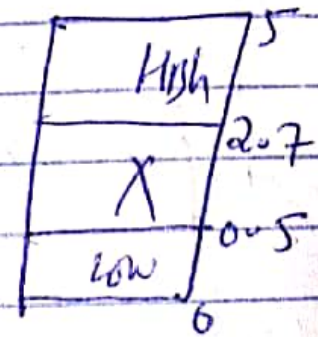 5
High
2.7
X
0.5
Low
0